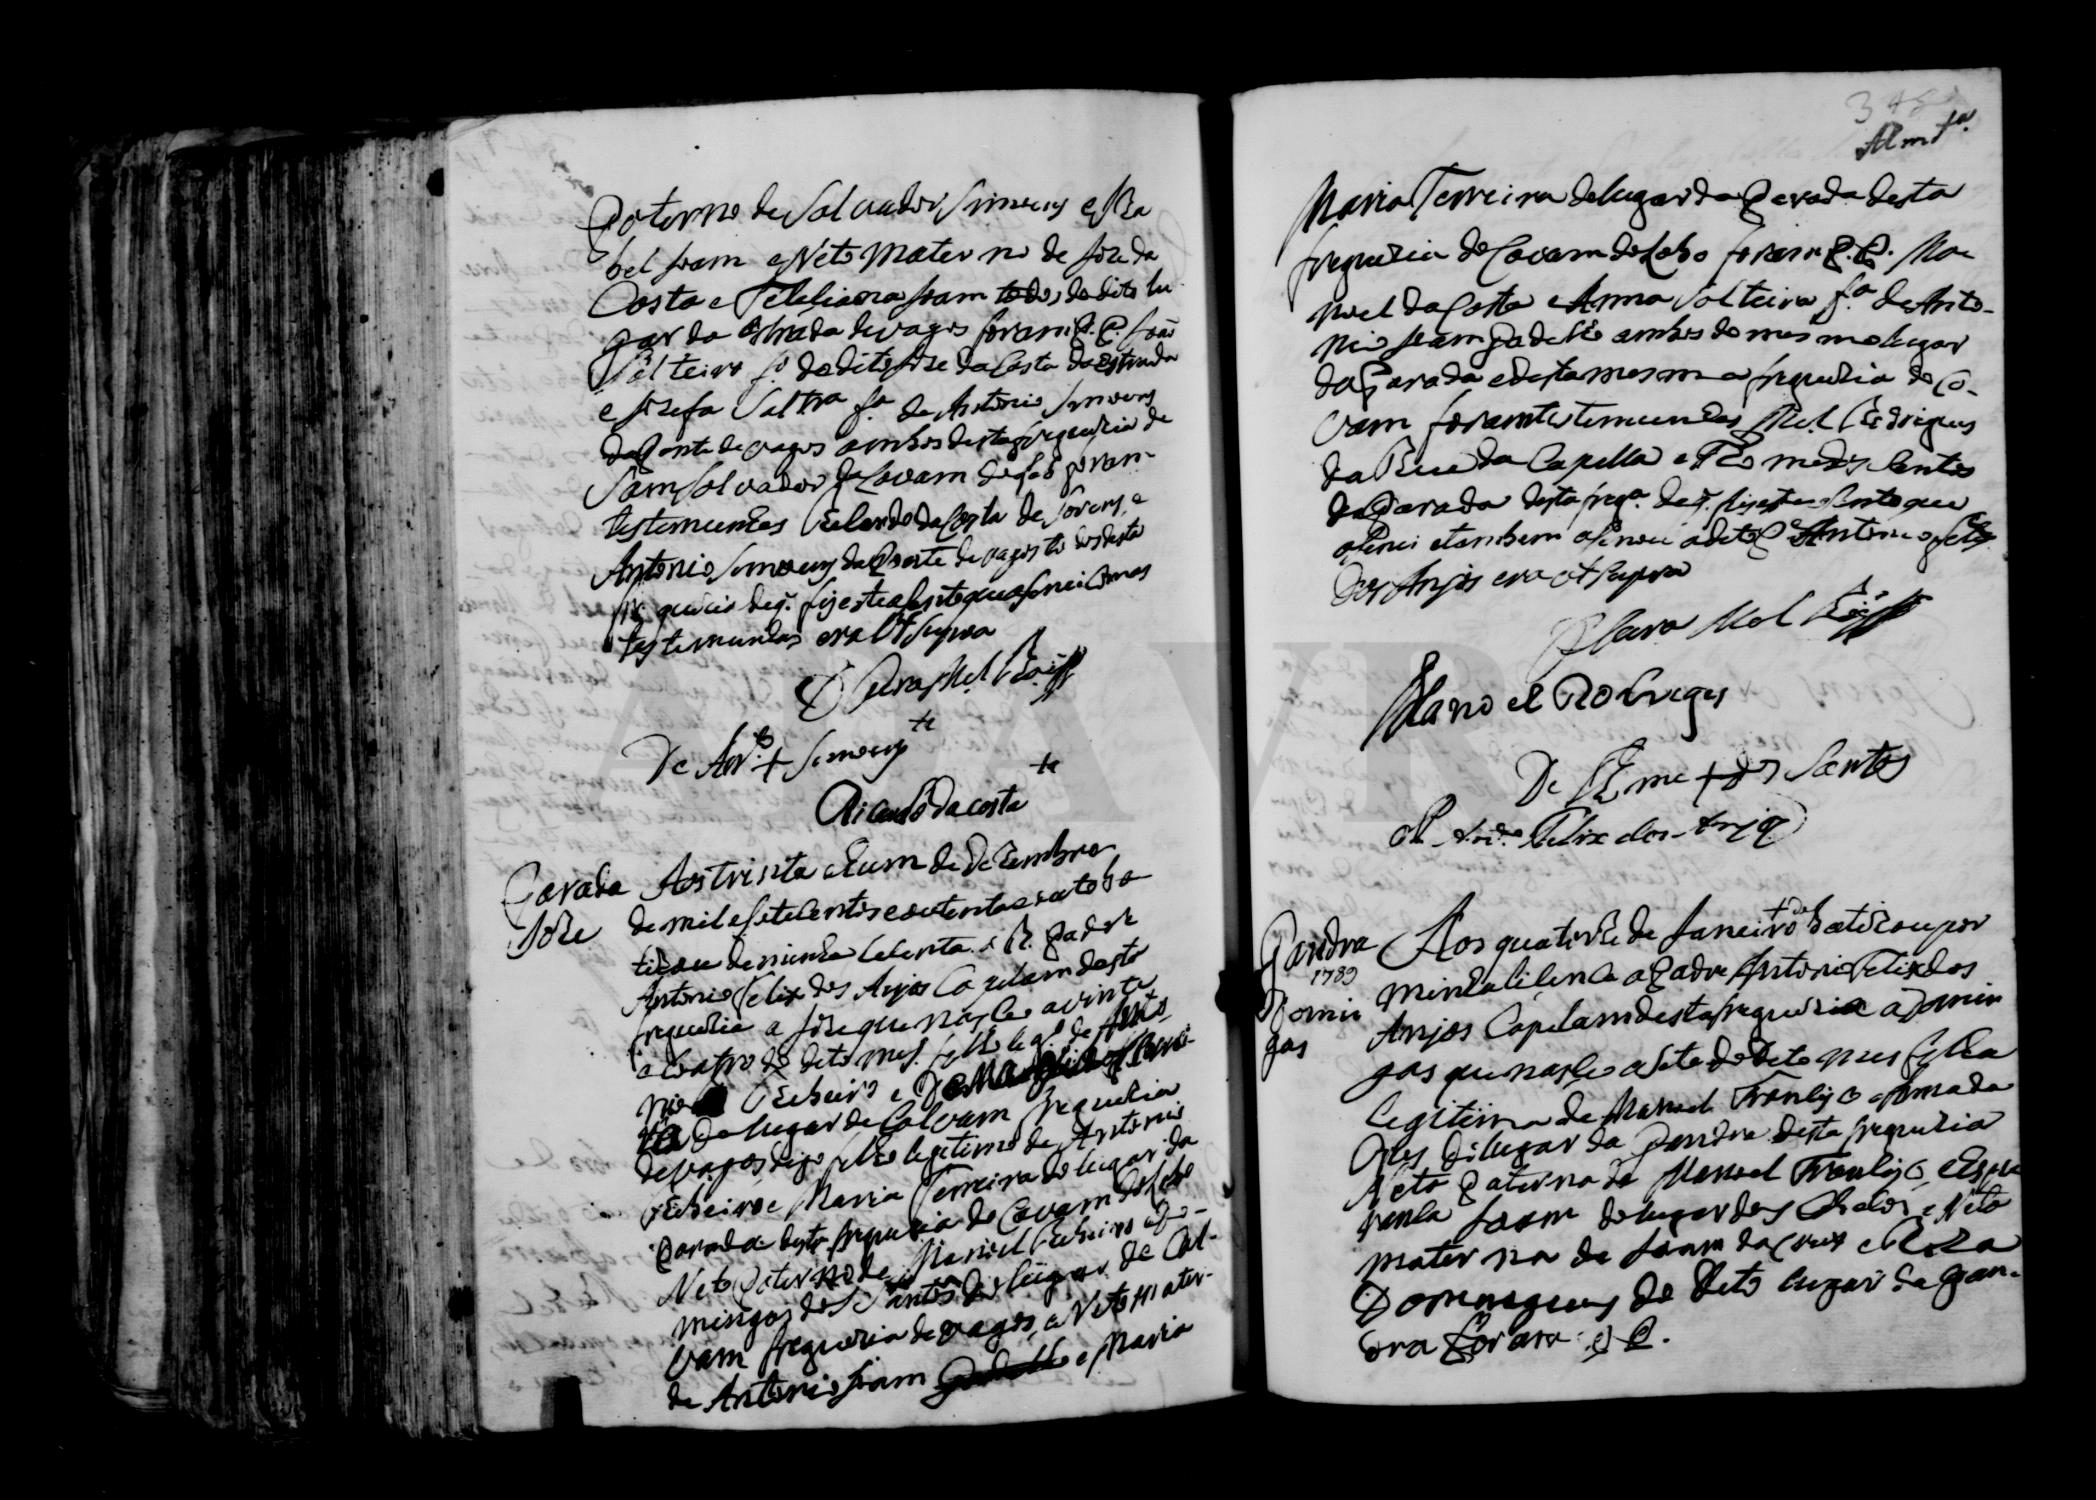 Paterno de Salvador Simoens e Iza
bel Joam e Neto Materno de Joze da
Costa e Feleciana Joam todos do dito lu
gar da estrada de vagos foram P. P. João
Solteiro fo do dito Joze da Costa da estrada
e Jozefa Soltra fa de Antonio Simoens
da Ponte de vagos ambos desta freguezia de
Sam Salvador do Covam do Lobo foram
testemunhas da Costa de e
Antonio Simoens da Ponte de vagos todos desta
freguezia de q. fiz este asento que asinei com as
testemunhas era ut Supra
Mel
De Anto + Simoens ta
Ricardo da costa ta
Parada Aos trinta e hum de Dezembro
Joze de mil e setecentos e outenta e outo ba
tizou de minha licenca o R. Padre
Antonio Felix dos Anjos Capelam desta
freguezia a Joze que nasceo a vinte
e coatro do dito mes filho leg. de Anto
nio Ribeiro e
do lugar de Calvam freguezia
de vagos digo filho legitimo de Antonio
Ribeiro e Maria Ferreira do lugar da
Parada desta freguezia do Covam do Lobo
Neto Paterno de Manoel Ribeiro e Do-
mingas dos Santos do lugar de Cal-
vam freguezia de vagos, e Neto mater-
no de Antonio Joam e Maria
Almda
Maria Ferreira do lugar da Parada desta
freguezia do Covam do Lobo foram P. P. Ma
noel da Costa e Anna Solteira fa de Anto-
nio Joam ambos do mesmo lugar
da Parada e desta mesma freguezia do Co-
vam foram testemunhas Mel Rodrigues
da Rua da Capella e Thome dos Santos
da Parada desta frega de q. fiz este asento que
asinei e tambem asinou o dito P. Antonio Felix
dos Anjos era ut Supra
Mel
Mano el Rodriges
De Thome + dos Santos
O P. Anto Felix dos Anjos
Gandra Aos quatorze de Janeiro + de Batizou por
1789 minha licenca o Padre Antonio Felix dos
Domin Anjos Capelam desta freguezia a Domin
gas gas que nasceo a sete do dito mes filha
legitima de Manoel e
do lugar da Gandra desta freguezia
Neta Paterna de Manoel e Espe
ranca Joam do lugar dos e Neta
materna de Joam da Cruz e Roza
Domingues do dito lugar da Gan-
dra foram P P.